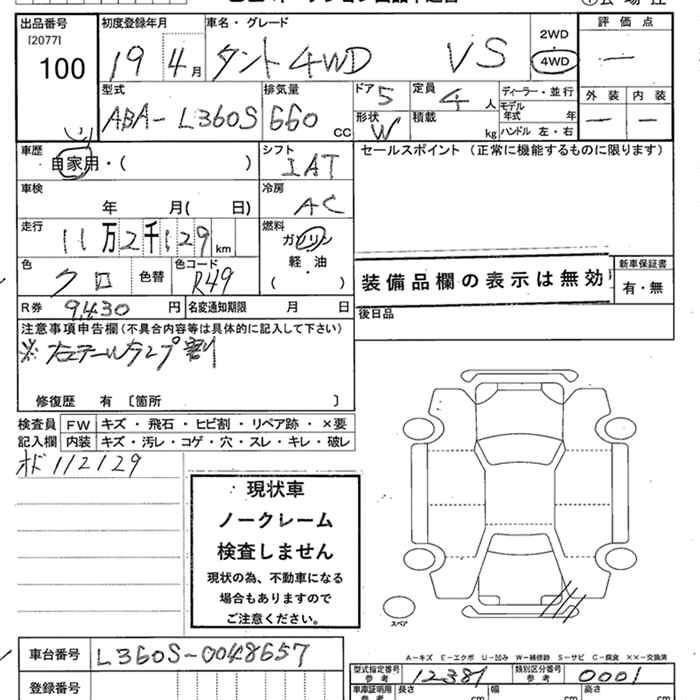 出品番号 初度登録年月 車名・グレード 評価点
[2077]
100 19 4月 タント 4WD VS 2WD 4WD ―
型式 排気量 ドア 定員 ディーラー・並行 外装 内装
ABA-L360S 660 CC 5 4人 モデル年式 年 ― ―
形状 W 積載 kg ハンドル 左・右
車歴 シフト セールスポイント (正常に機能するものに限ります)
自家用・( ) IAT
車検 冷房
年 月( 日) AC
走行 燃料
11万2千129km ガソリン
軽・油
( )
色 クロ 色替 色コード R49 装備品欄の表示は無効 新車保証書
有・無
R券 9,430円 名変通知期限 月 日 後日品
注意事項申告欄(不具合内容等は具体的に記入して下さい)
※右テールランプ割り
修復歴 有 〔箇所 〕
検査員 FW キズ・飛石・ヒビ割・リペア跡・×要
記入欄 内装 キズ・汚レ・コゲ・穴・スレ・キレ・破レ
オド112129
現状車
ノークレーム
検査しません
現状の為、不動車になる
場合もありますので
ご注意ください。
スペア
A-キズ E-エクボ U-凹み W-補修跡 S-サビ C-腐食 ××-交換済
車台番号 L360S-0048657
型式指定番号 参考 12381 類別区分番号 参考 0001
登録番号
車庫証明用 参考 長さ cm 幅 cm 高さ cm